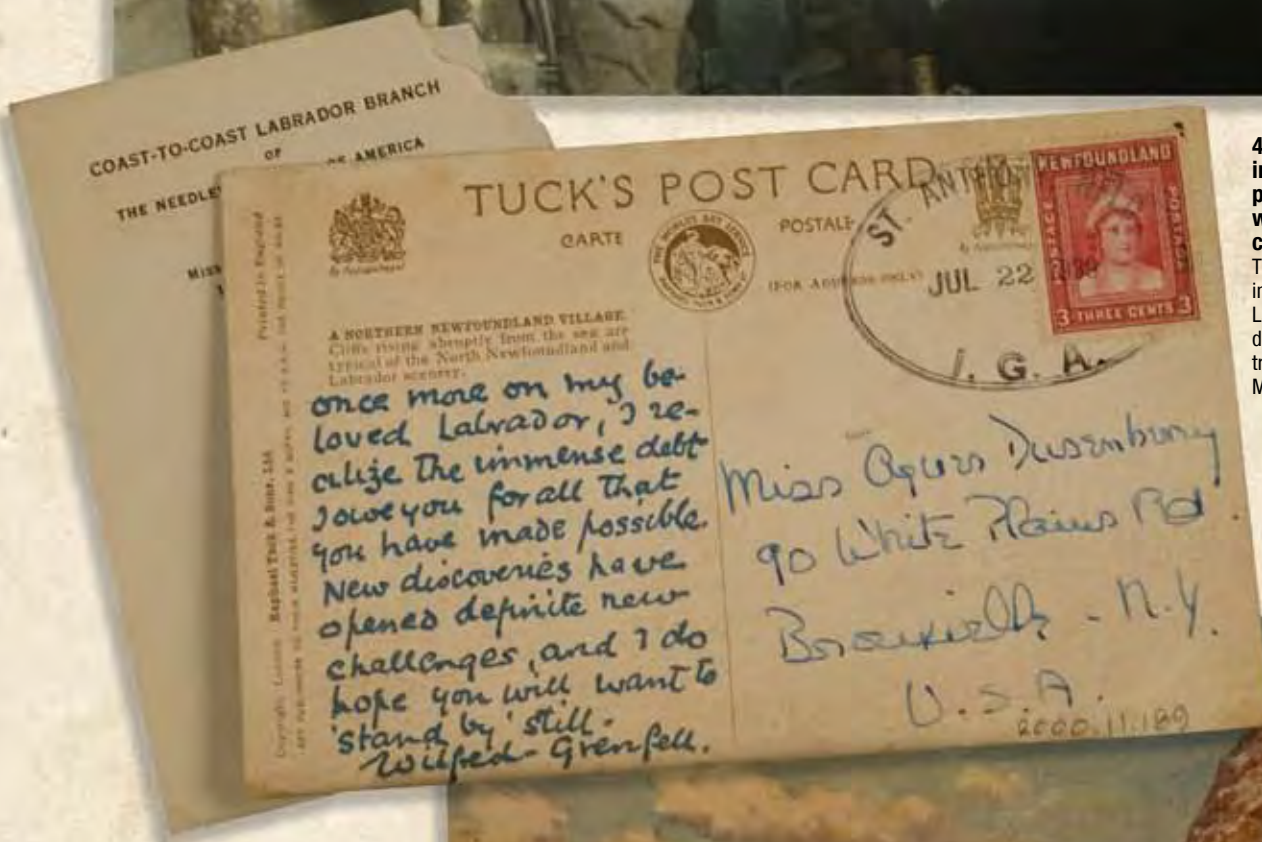 COAST-TO-COAST LABRADOR BRANCH
OF
THE NEEDLE
OF AMERICA
Miss
TUCK'S POST CARD
CARTE
POSTALE
(FOR ADDRESS ONLY)
Printed in England
A NORTHERN NEWFOUNDLAND VILLAGE.
Cliffs rising abruptly from the sea are
typical of the North Newfoundland and
Labrador scenery.
once more on my be-
loved Labrador, I re-
alize the immense debt
I owe you for all that
you have made possible.
New discoveries have
opened definite new
challenges, and I do
hope you will want to
'stand by' still.
Wilfred Grenfell.
Raphael Tuck & Sons, Ltd
ST. ANTHONY
JUL 22
I. G. A.
NEWFOUNDLAND
POSTAGE
POSTAGE
3 THREE CENTS 3
Miss Agnes Dusenbury
90 White Plains Rd.
Bronxville - N.Y.
U.S.A.
2000.11.189
4
in
p
w
c
T
in
L
d
tr
M